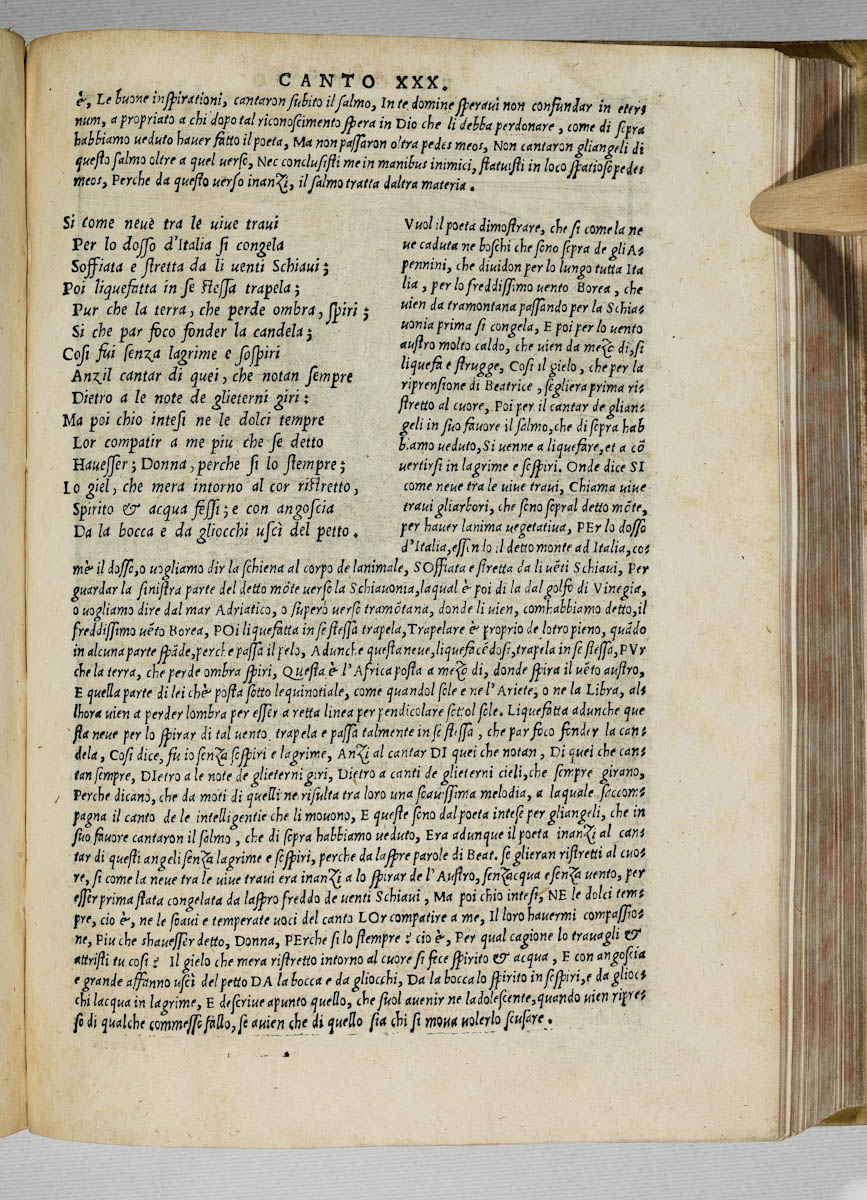 CANTO XXX.
è, Le buone inspirationi, cantaron subito il salmo, In te domine speraui non confundar in eter⸗
num, a propriato a chi dopo tal riconoscimento spera in Dio che li debba perdonare, come di sopra
habbiamo ueduto hauer fatto il poeta, Ma non passaron oltra pedes meos, Non cantaron gliangeli di
questo salmo oltre a quel uerso, Nec conclusisti me in manibus inimici, statuisti in loco spatioso pedes
meos, Perche da questo uerso inanzi, il salmo tratta daltra materia.
Si come neuè tra le uiue traui
Per lo dosso d'Italia si congela
Soffiata e stretta da li uenti Schiaui;
Poi liquefatta in se stessa trapela;
Pur che la terra, che perde ombra, spiri;
Si che par foco fonder la candela;
Cosi fui senza lagrime e sospiri
Anzil cantar di quei, che notan sempre
Dietro a le note de glieterni giri:
Ma poi chio intesi ne le dolci tempre
Lor compatir a me piu che se detto
Hauesser; Donna, perche si lo stempre;
Lo giel, che mera intorno al cor ristretto,
Spirito & acqua fessi; e con angoscia
Da la bocca e da gliocchi uscì del petto.
Vuol il poeta dimostrare, che si come la ne
ue caduta ne boschi che sono sopra de gli A⸗
pennini, che diuidon per lo lungo tutta Ita
lia, per lo freddissimo uento Borea, che
uien da tramontana passando per la Schia⸗
uonia prima si congela, E poi per lo uento
austro molto caldo, che uien da mezo di, si
liquefa e strugge, Cosi il gielo, che per la
riprensione di Beatrice, segliera prima ri⸗
stretto al cuore, Poi per il cantar de glian⸗
geli in suo fauore il salmo, che di sopra hab
biamo ueduto, Si uenne a liquefare, et a cō
uertirsi in lagrime e sospiri. Onde dice SI
come neue tra le uiue traui, Chiama uiue
traui gliarbori, che sono sopral detto mōte,
per hauer lanima uegetatiua, PEr lo dosso
d'Italia, essendo il detto monte ad Italia, co⸗
mè il dosso, o uogliamo dir la schiena al corpo de lanimale, SOffiata e stretta da li uēti Schiaui, Per
guardar la sinistra parte del detto mōte uerso la Schiauonia, laqual è poi di la dal golfo di Vinegia,
o uogliamo dire dal mar Adriatico, o superò uerso tramōtana, donde li uien, comhabbiamo detto, il
freddissimo uēto Borea, POi liquefatta in se stessa trapela, Trapelare è proprio de lotro pieno, quādo
in alcuna parte spāde, perche passa il pelo, Adunche questa neue, liquefacēdosi, trapela in se stessa, PVr
che la terra, che perde ombra spiri, Questa è l'Africa posta a mezo di, donde spira il uēto austro,
E quella parte di lei chè posta sotto lequinotiale, come quandol sole e ne l'Ariete, o ne la Libra, al⸗
lhora uien a perder lombra per esser a retta linea perpendicolare sottol sole. Liquefatta adunche que
sta neue per lo spirar di tal uento, trapela e passa talmente in se stessa, che par foco fonder la can⸗
dela, Cosi dice, fu io senza sospiri e lagrime, Anzi al cantar DI quei che notan, Di quei che can⸗
tan sempre, DIetro a le note de glieterni giri, Dietro a canti de glieterni cieli, che sempre girano,
Perche dicano, che da moti di quelli ne risulta tra loro una soauissima melodia, a laquale saccom⸗
pagna il canto de le intelligentie che li mouono, E queste sono dal poeta intese per gliangeli, che in
suo fauore cantaron il salmo, che di sopra habbiamo ueduto, Era adunque il poeta inanzi al can⸗
tar di questi angeli senza lagrime e sospiri, perche da laspre parole di Beat. se glieran ristretti al cuo⸗
re, si come la neue tra le uiue traui era inanzi a lo spirar de l'Austro, senzacqua e senza uento, per
esser prima stata congelata da laspro freddo de uenti Schiaui, Ma poi chio intesi, NE le dolci tem⸗
pre, cio è, ne le soaui e temperate uoci del canto LOr compatire a me, Il loro hauermi compassio⸗
ne, Piu che shauesser detto, Donna, PErche si lo stempre? cio è, Per qual cagione lo trauagli &
attristi tu cosi? Il gielo che mera ristretto intorno al cuore si fece spirito & acqua, E con angoscia
e grande affanno uscì del petto DA la bocca e da gliocchi, Da la bocca lo spirito in sospiri, e da glioc⸗
chi lacqua in lagrime, E descriue apunto quello, che suol auenir ne ladolescente, quando uien ripre⸗
so di qualche commesso fallo, se auien che di quello sia chi si moua uolerlo scusare.